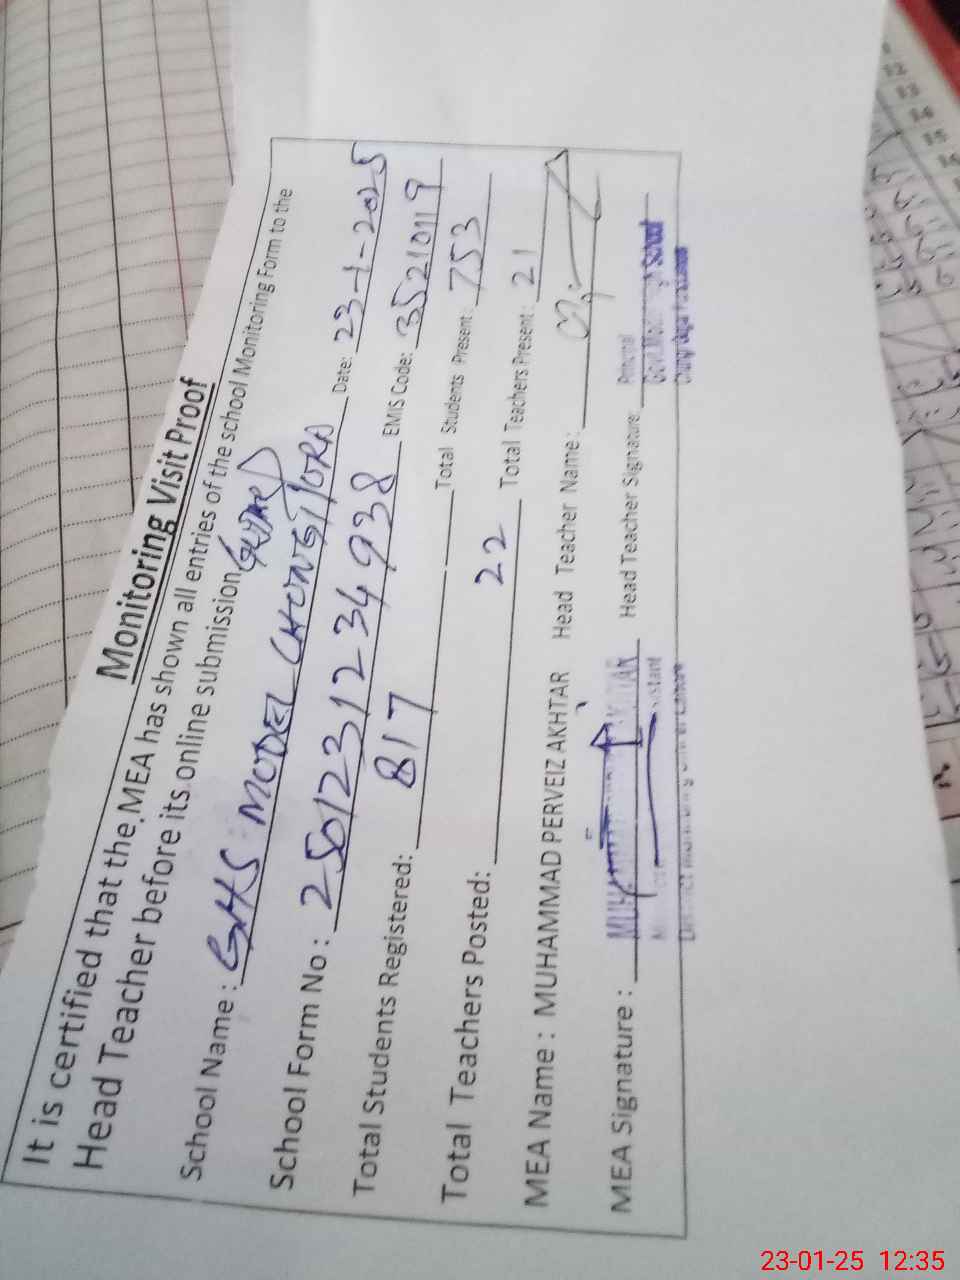 Monitoring Visit Proof
It is certified that the MEA has shown all entries of the school Monitoring Form to the
Head Teacher before its online submission
School Name : GHS MODEL CHUNG Date: 23-1-2025
School Form No : 2501231234938 EMIS Code: 35210119
Total Students Registered: 817 Total Students Present: 753
Total Teachers Posted: 22 Total Teachers Present: 21
MEA Name : MUHAMMAD PERVEIZ AKHTAR Head Teacher Name:
MEA Signature : Head Teacher Signature:
MUHAMMAD AKHTAR Principal
Govt. Model School
23-01-25 12:35